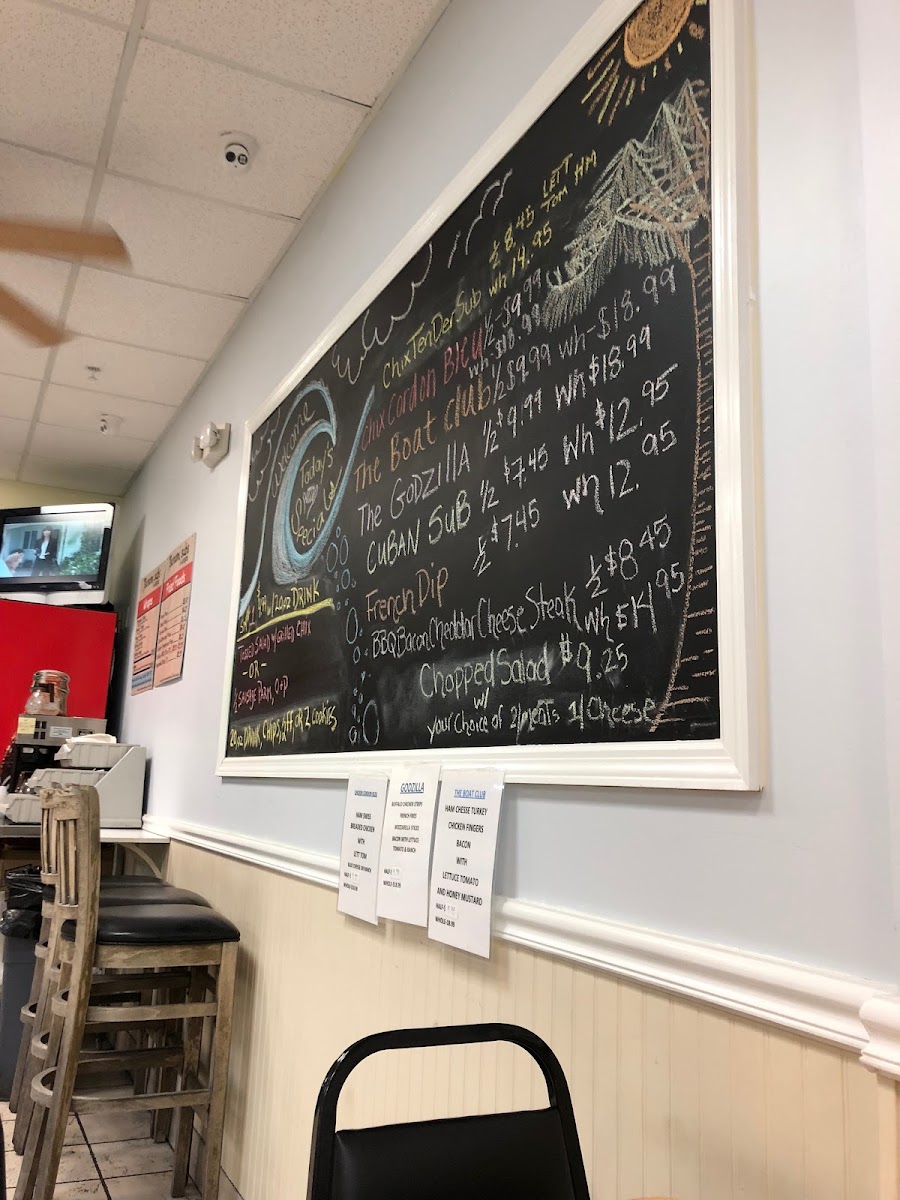 Welcome
Today's
Special
ChixTenDerSub ½ 8.45 LETT
wh 14.95 TOM HM
Chix Cordon Bleu ½-$9.99
wh $18.99
The Boat Club ½ $9.99 Wh-$18.99
The GODZILLA ½ $9.99 Wh $18.99
CUBAN SUB ½ $7.45 Wh $12.95
French Dip ½ $7.45 Wh 12.95
BBQ Bacon Cheddar Cheese Steak ½ $8.45
Wh $14.95
Chopped Salad $9.25
w/
your choice of 2/meats 1/Cheese
w/20oz DRINK
Tossed Salad w/Grilled CHIX
-OR-
½ Sausage Parm, O+P
20oz Drink, Chips, FF or 2 cookies
HAM SWISS
BREADED CHICKEN
WITH
LETT TOM
GODZILLA
BUFFALO CHICKEN STRIPS
FRENCH FRIES
MOZZARELLA STICKS
BACON WITH LETTUCE
TOMATO & RANCH
THE BOAT CLUB
HAM CHEESE TURKEY
CHICKEN FINGERS
BACON
WITH
LETTUCE TOMATO
AND HONEY MUSTARD